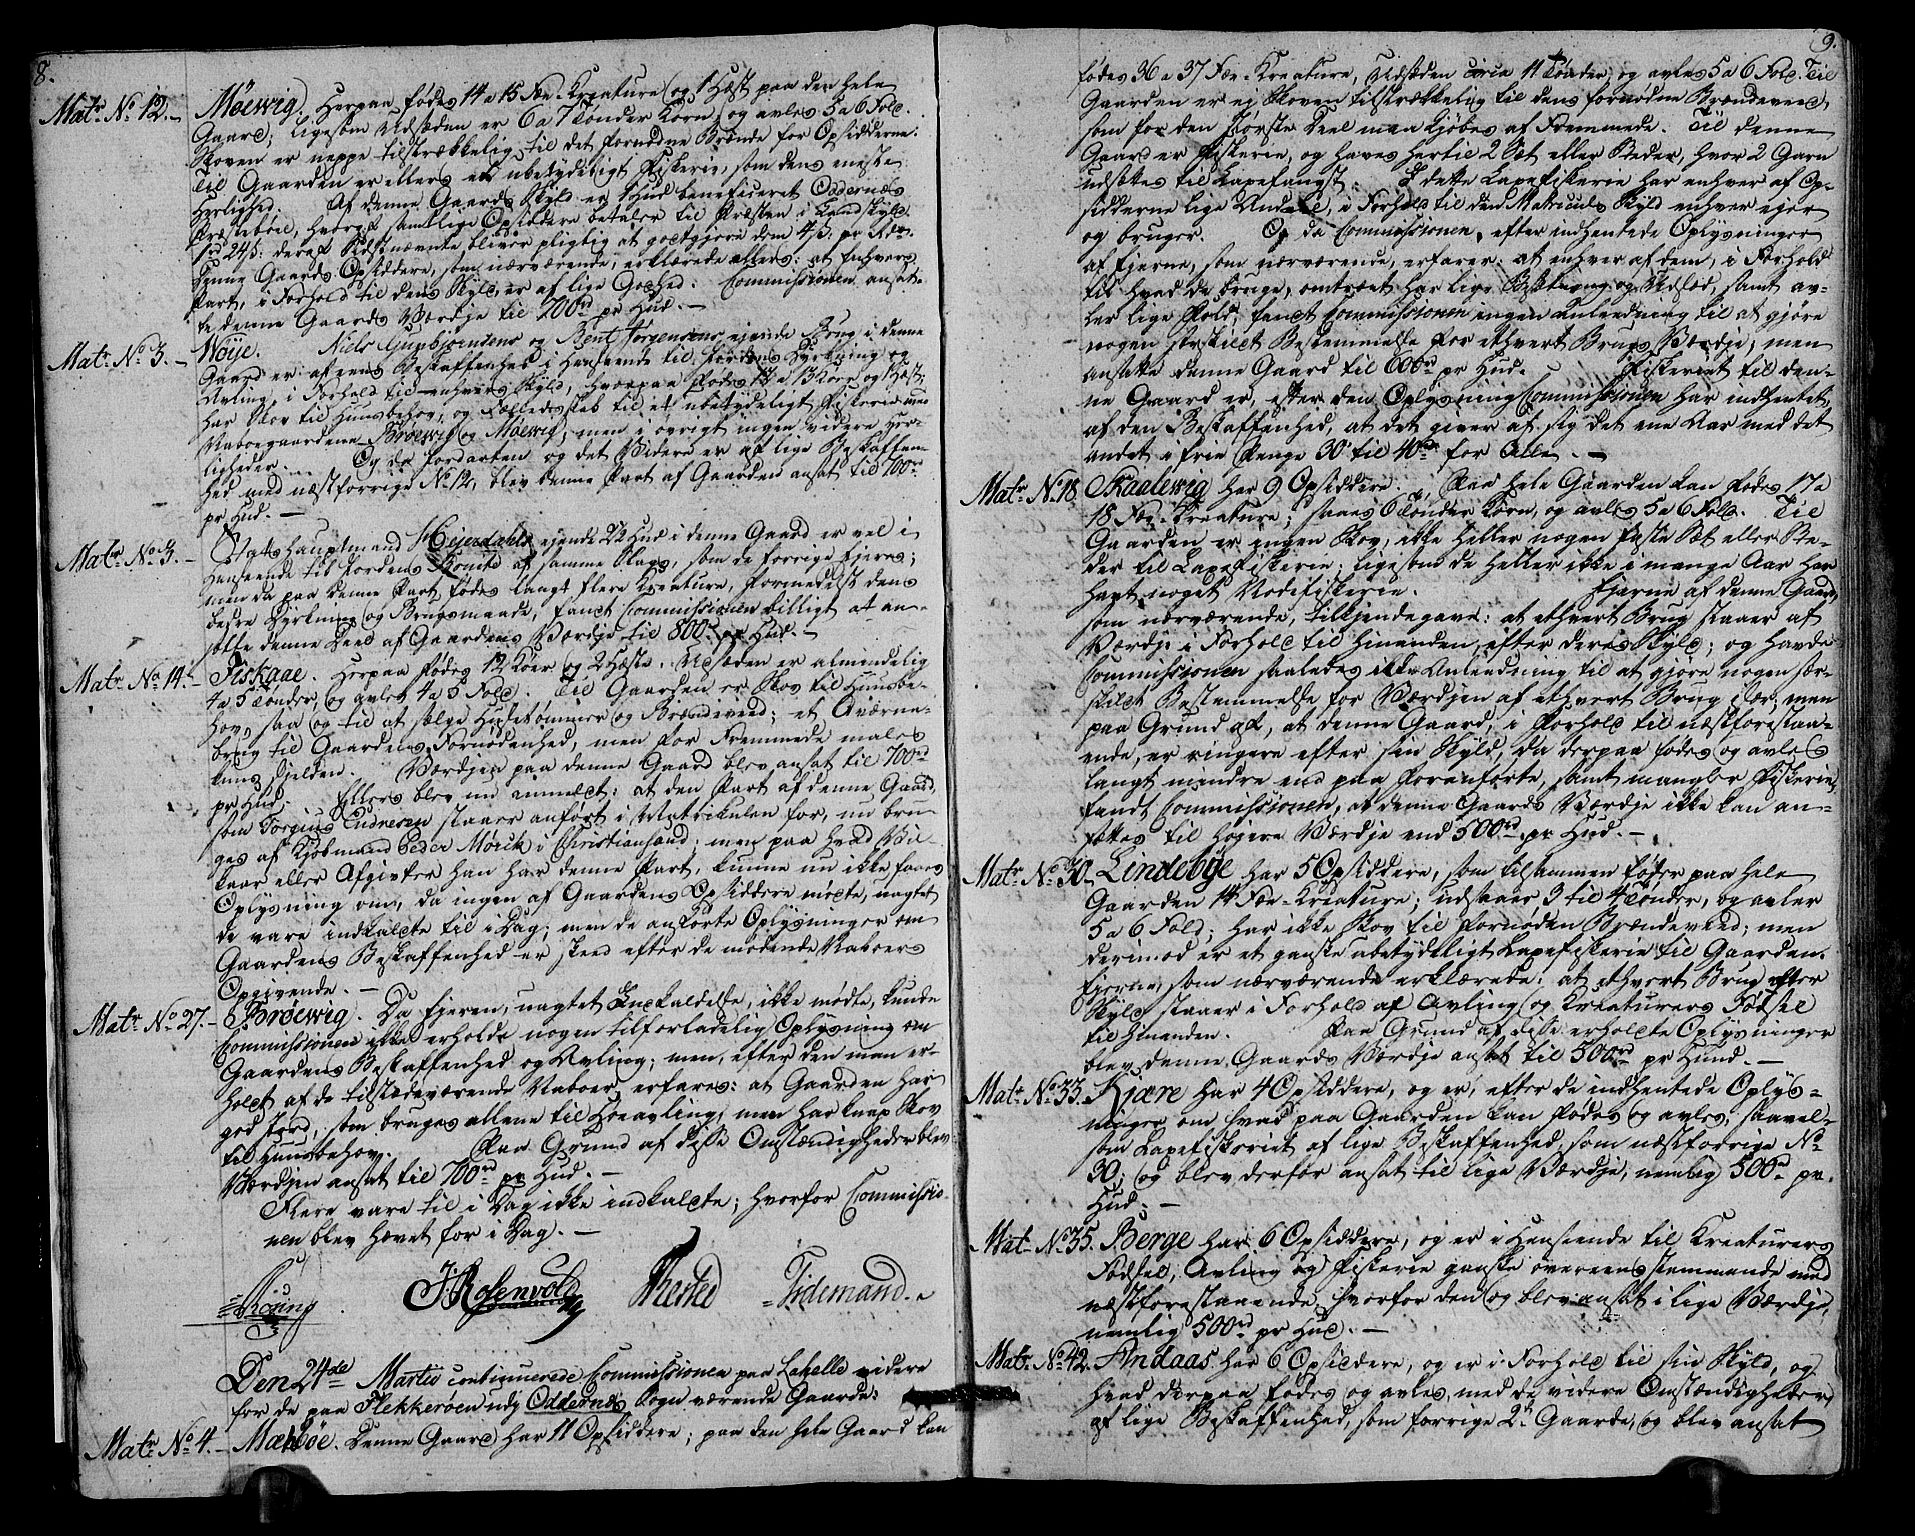 8.
Matr. No. 12. - Møewig. Herpaa fødes 14 a 15 Fæ-Kreature og 1 Hæst paa den hele
Gaard; ligesom Udsæden er 6 a 7 Tønder Korn, og avles 5 a 6 Fold.
Skoven er neppe tilstrækkelig til det fornødne Brænde for Opsidderne.
Til Gaarden er ellers et ubetydeligt Fiskerie, som dens meste
Herlighed. Af denne Gaards Skyld er 1 Hud beneficeret Oddernes
Præstebøl, hvoraf samtlige Opsiddere betaler til Præsten i Landskyld
24 s: deraf Sidstnevnte bliver pligtig at godtgjøre dem 4 s. pr. Rdr.
Denne Gaards Opsiddere, som nærværende, erklærede ellers: at Enhvers
Part, i Forhold til dens Skyld, er af lige Godhed. Commissionen ansat-
te denne Gaards Værdje til 700 rd pr Hud. -
Matr. No. 3. - Wøije. Niels Gunbjørnsens og Bent Jørgensens ejende Brug i denne
Gaard er af eens Beskaffenhed i Henseende til Jordens Dyrkning og
Avling, i Forhold til enhvers Skyld, hvorpaa fødes 12 a 13 Køer og 1 Hæst;
har Skov til Huusbehov, og Fælledsskab til et ubetydeligt Fiskerie med
Naboegaardene Brøewig og Møewig; men i øvrigt ingen videre Her-
ligheder. Og da Jordarten og det Videre er af lige Beskaffen-
hed med næstforrige No. 12, blev denne Part af Gaarden ansat til 700 rd
pr Hud. -
Matr. No. 3. - Statshauptmand Heierdahls ejende 2½ Hud i denne Gaard er vel i
Henseende til Jordens Bonité af samme Slags, som de forrige Ejeres;
men da paa denne Part fødes langt flere Kreature, formedelst dens
bedre Dyrkning og Brugsmaade, fandt Commissionen billigt at an-
sætte denne Deel af Gaardens Værdje til 800 rd pr Hud. -
Matr. No. 14. - Fiskaae. Herpaa fødes 12 Køer og 2 Hæste. Udsæden er almindelig
4 a 5 Tønder, og avles 4 a 5 Fold. Til Gaarden er Skov til Huusbe-
hov, saa og til at sælge Huustømmer og Brændeveed; et Qværne-
brug til Gaardens Fornødenhed, men for Fremmede males
kuns sjelden. Værdjen paa denne Gaard blev ansat til 700 rd
pr Hud. Ellers blev nu anmeldt: at den Part af denne Gaard,
som Torgius Endresen staaer anført i Matrikulen for, nu bru-
ges af Kjøbmand Peder Mørch i Christiansand; men paa hvad Vil-
kaar eller Afgivter han har denne Part, kunne nu ikke faaes
Oplysning om, da ingen af Gaardens Opsiddere mødte, uagtet
de vare indkaldte til i Dag; men de anførte Oplysninger om
Gaardens Beskaffenhed er skeed efter de mødende Naboers
Opgivende. -
Matr. No. 27. - Brøewig. Da Ejeren, uagtet Indkaldelse, ikke mødte, kunde
Commissionen ikke erholde nogen tilforladelig Oplysning om
Gaardens Beskaffenhed og Avling; men, efter den man er-
holdt af de tilstædeværende Naboer, erfares: at Gaarden har
god Jord, som bruges allene til Høeavling, men har knap Skov
til Huusbehov. Paa Grund af disse Omstændigheder blev
Værdjen ansat til 700 rd pr Hud. -
Flere vare til i Dag ikke indkaldte; hvorfor Commissio-
nen blev hævet for i Dag. -
J. Rosenvold Thersted Tidemand.
Den 24de Martii continuerede Commissionen paa Lahelle videre
for de paa Flekkerøen udj Oddernes Sogn værende Gaarde:
Matr. No. 4. - Mæbøe. Denne Gaard har 11 Opsiddere; paa den hele Gaard kan
9.
fødes 36 a 37 Fæ-Kreature, Udsæden circa 11 Tønder, og avles 5 a 6 Fold. Til
Gaarden er ej Skoven tilstrækkelig til dens fornødne Brændeveed,
som for den største Deel maa kjøbes af Fremmede. Til denne
Gaard er Fiskerie, og haves hertil 2 Sæt eller Steder, hvor 2 Garn
udsættes til Laxefangst. I dette Laxefiskerie har enhver af Op-
sidderne lige Andeel, i Forhold til den Matriculs Skyld enhver ejer
og bruger. Og da Commissionen, efter indhentede Oplysninger
af Ejerne, som nærværende, erfarer: at enhver af dem, i Forhold
til hvad de bruge, omtrent har lige Besætning og Udsæd, samt av-
ler lige Fold; fandt Commissionen ingen Anledning til at gjøre
nogen særskilt Bestemmelse for ethvert Brugs Værdje; men
ansatte denne Gaard til 600 rd pr Hud. Fiskeriet til den-
ne Gaard er, efter den Oplysning Commissionen har indhentet,
af den Beskaffenhed, at det giver af sig det ene Aar med det
andet i frie Penge 30 til 40 rd for Alle. -
Matr. No. 18. Skaalewig har 9 Opsiddere. Paa hele Gaarden kan fødes 17 a
18 Fæ-Kreature; saaes 6 Tønder Korn, og avles 5 a 6 Fold. Til
Gaarden er ingen Skov, ikke heller nogen faste Sæt eller Ste-
der til Laxefiskerie; ligesom de heller ikke i mange Aar har
havt noget Nodfiskerie. Ejerne af denne Gaard,
som nærværende, tilkjendegave: at ethvert Brug staaer af
Værdje i Forhold til hinanden, efter deres Skyld; og havde
Commissionen saaledes ikke Anledning til at gjøre nogen sær-
skilt Bestemmelse for Værdjen af ethvert Brug især; men
paa Grund af, at denne Gaard, i Forhold til næstforestaa-
ende, er ringere efter sin Skyld, da derpaa fødes og avles
langt mindre end paa foranførte, samt mangler Fiskerie,
fandt Commissionen, at denne Gaards Værdje ikke kan an-
sættes til højere Værdje end 500 rd pr Hud. -
Matr. No. 30. Lindebøe har 5 Opsiddere, som tilsammen føder paa hele
Gaarden 14 Fæ-Kreature; udsaaer 3 til 4 Tønder, og avler
5 a 6 Fold; har ikke Skov til fornøden Brændeveed; men
derimod er et ganske ubetydeligt Laxefiskerie til Gaarden.
Ejerne, som nærværende, erklærede: at ethvert Brug efter
Skyld staaer i Forhold af Avling og Kreaturers Fødsel
til hinanden. Paa Grund af disse erholdte Oplysninger
blev denne Gaards Værdje ansat til 500 rd pr Hund. -
Matr. No. 33. Kjære har 4 Opsiddere, og er, efter de indhentede Oplys-
ninger om hvad paa Gaarden kan fødes og avles, saavel-
som Laxefiskeriet af lige Beskaffenhed, som næstforrige No.
30; og blev derfor ansat til lige Værdje, nemlig 500 rd pr.
Hud. -
Matr. No. 35. Berge har 6 Opsiddere, og er i Henseende til Kreaturers
Fødsel, Avling og Fiskerie ganske overeensstemmende med
næstforestaaende, hvorfor den og blev ansat i lige Værdje,
nemlig 500 rd pr Hud. -
Matr. No. 42. Andaas har 6 Opsiddere, og er i Forhold til sin Skyld, og
hvad derpaa fødes og avles, med de videre Omstændigheder,
af lige Beskaffenhed, som forrige 2de Gaarde, og blev ansat